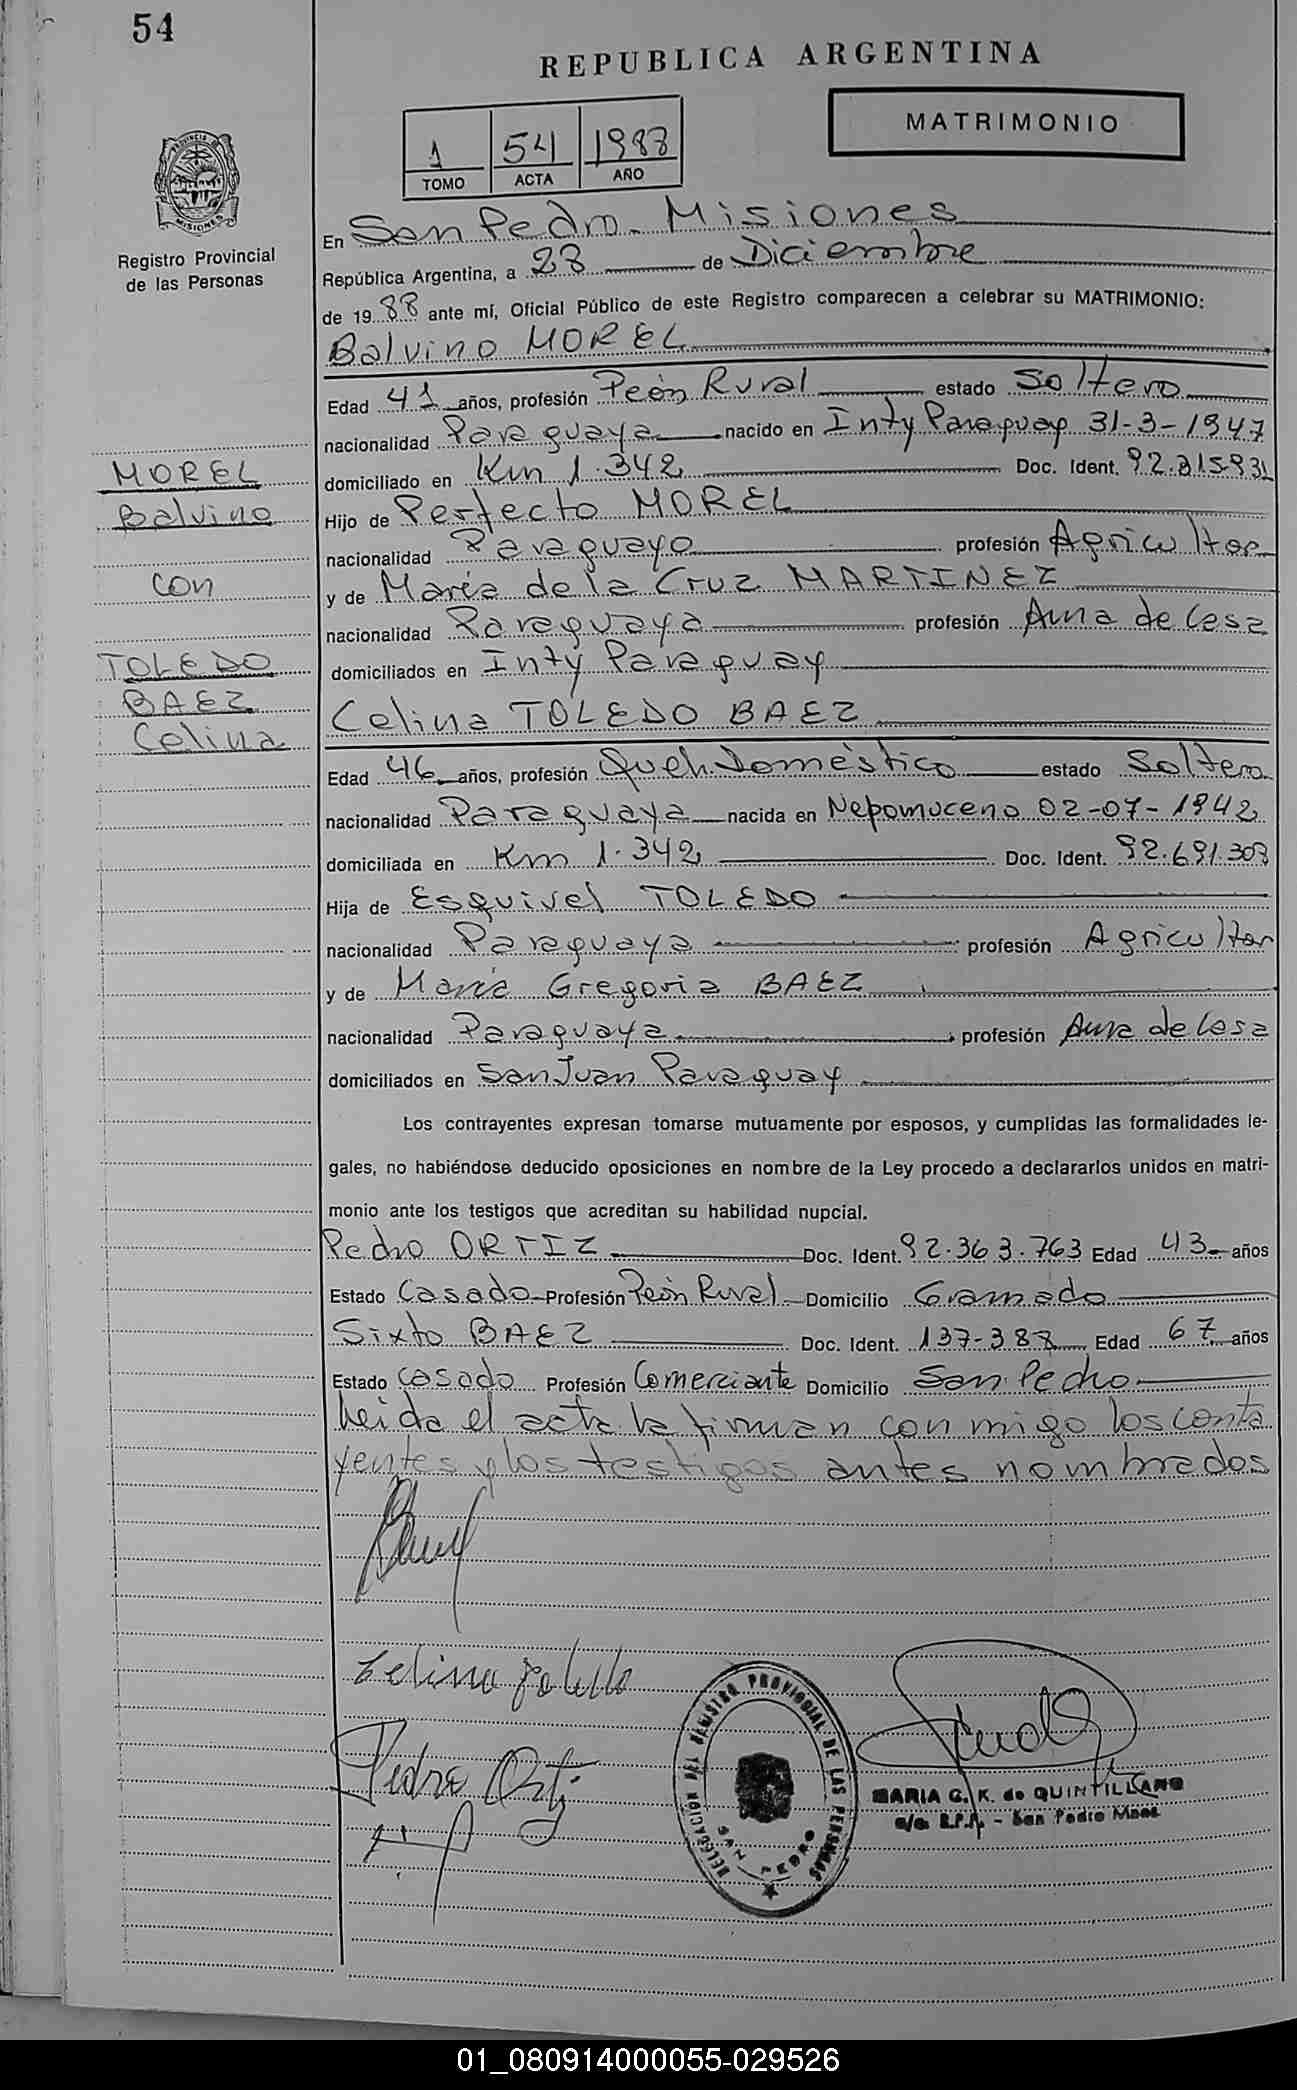 54
REPUBLICA ARGENTINA
MATRIMONIO
1 54 1988
TOMO ACTA AÑO
Registro Provincial
de las Personas
En San Pedro - Misiones
República Argentina, a 28 de Diciembre
de 1988 ante mí, Oficial Público de este Registro comparecen a celebrar su MATRIMONIO:
Balvino MOREL
Edad 41 años, profesión Peón Rural estado Soltero
nacionalidad Paraguaya nacido en Inty Paraguay 31-3-1947
domiciliado en Km 1.342 Doc. Ident. 92.215.931
Hijo de Perfecto MOREL
nacionalidad Paraguayo profesión Agricultor
y de María de la Cruz MARTINEZ
nacionalidad Paraguaya profesión Ama de Casa
domiciliados en Inty Paraguay
MOREL
Balvino
con
TOLEDO
BAEZ
Celina
Celina TOLEDO BAEZ
Edad 46 años, profesión Queh. Doméstico estado Soltera
nacionalidad Paraguaya nacida en Nepomuceno 02-07-1942
domiciliada en Km 1.342 Doc. Ident. 92.691.308
Hija de Esquivel TOLEDO
nacionalidad Paraguaya profesión Agricultor
y de María Gregoria BAEZ
nacionalidad Paraguaya profesión Ama de Casa
domiciliados en San Juan Paraguay
Los contrayentes expresan tomarse mutuamente por esposos, y cumplidas las formalidades le-
gales, no habiéndose deducido oposiciones en nombre de la Ley procedo a declararlos unidos en matri-
monio ante los testigos que acreditan su habilidad nupcial.
Pedro ORTIZ Doc. Ident. 92.363.763 Edad 43 años
Estado Casado Profesión Peón Rural Domicilio Gramado
Sixto BAEZ Doc. Ident. 137-388 Edad 67 años
Estado Casado Profesión Comerciante Domicilio San Pedro
Leida el acta la firman con migo los conta
yentes y los testigos antes nombrados
Celina Toledo
Pedro Ortiz
DELEGACION DEL REGISTRO PROVINCIAL DE LAS PERSONAS
SAN PEDRO
MARIA G. K. de QUINTILLANO
a/c R.P.P. - San Pedro Mnes.
01_080914000055-029526